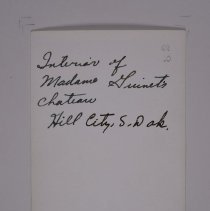 Interior of
Madame Guinets
chateau
Hill City, S. Dak.